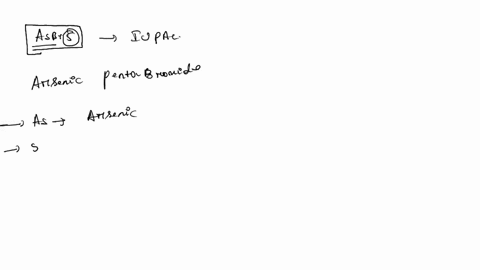 AsBr5 → IUPAC
Arsenic pentabromide
→ As → Arsenic
→ 5